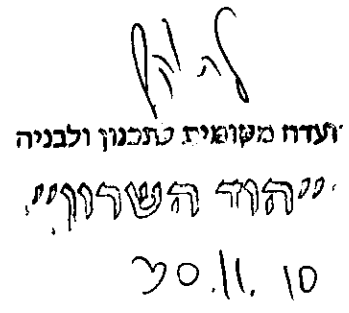 ועדה מקומית לתכנון ולבניה
"הוד השרון"
30.11.10